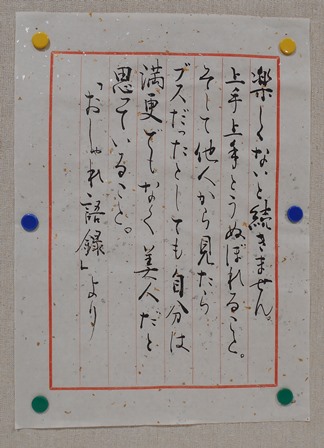 楽しくないと続きません。
上手上手とうぬぼれること。
そして他人から見たら
ブスだったとしても自分は
満更でもなく美人だと
思っていること。
「おしゃれ語録」より